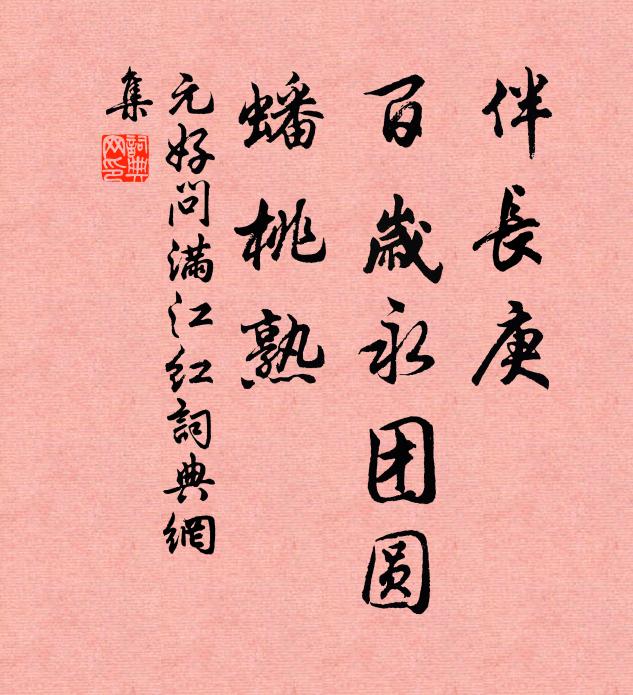 伴長庚
百歲永团圆
蟠桃熟
元好问滿江红詞典網
集
詞典網印